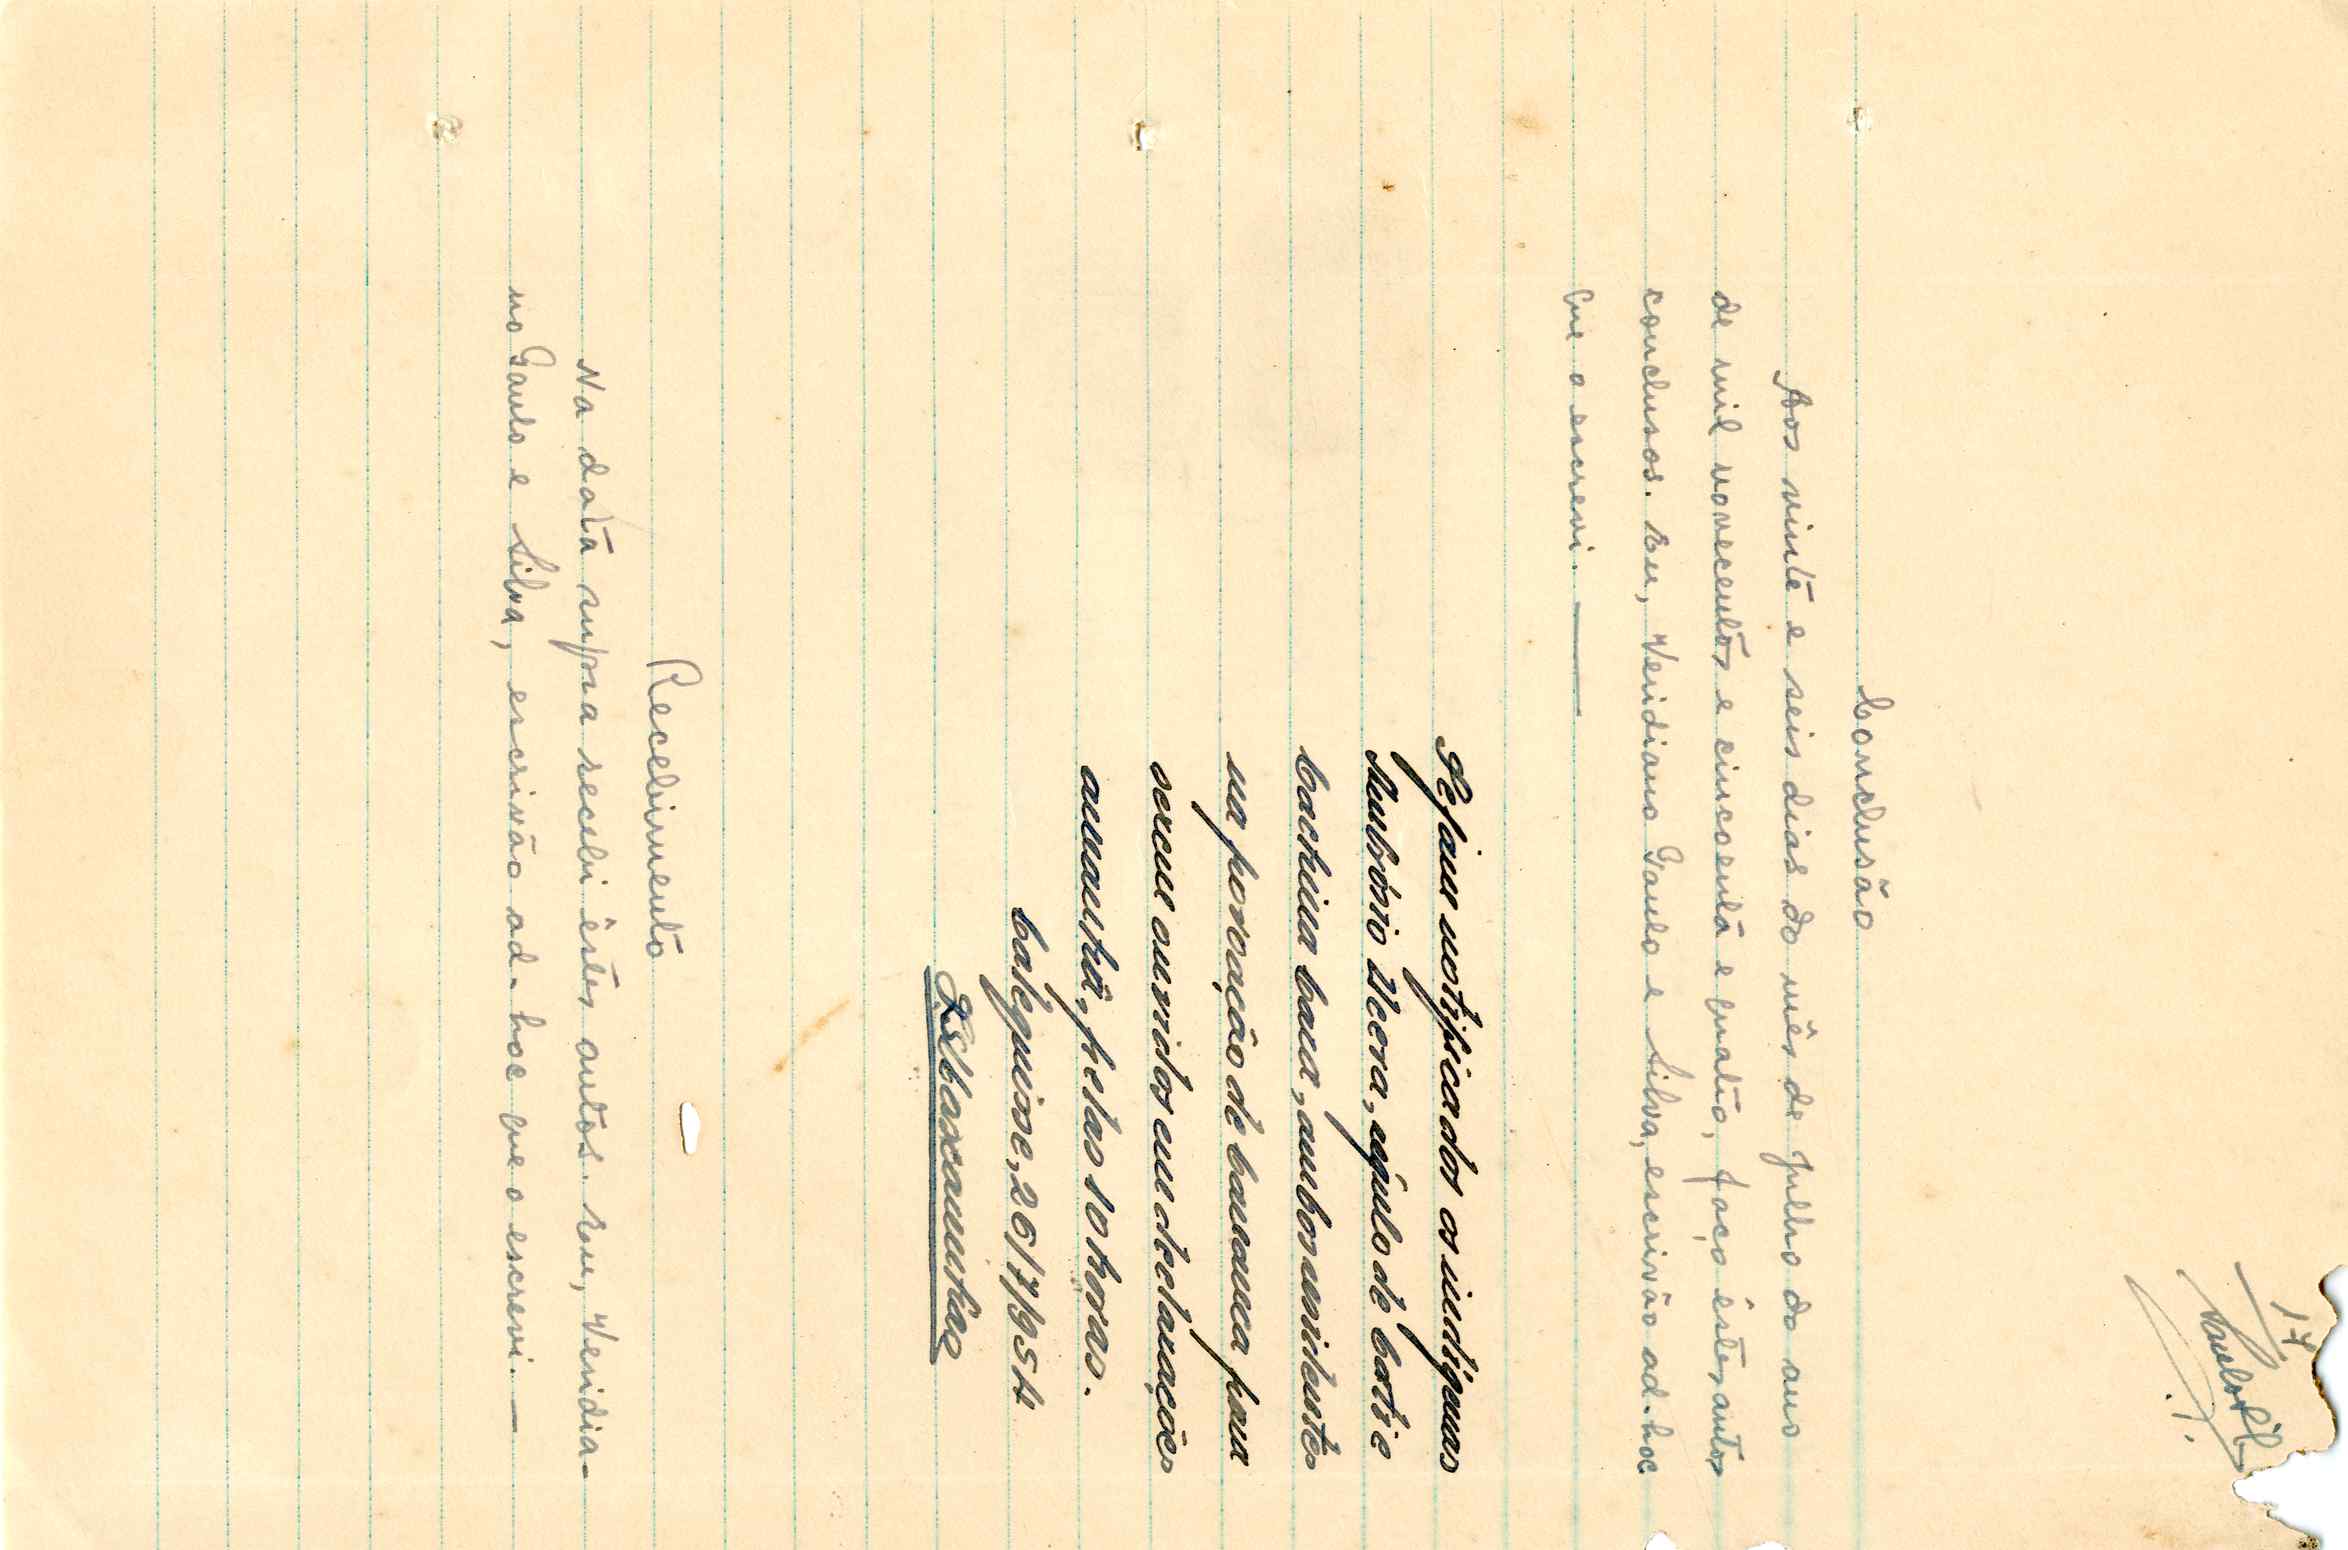 17
Conclusão
Aos vinte e seis dias do mês de julho do ano
de mil novecentos e cincoenta e quatro, faço êstes autos
conclusos. Eu, Veridiano Paulo e Silva, escrivão ad-hoc
que o escrevi.
Sejam notificados os indígenas
de
Cachina Cana, ambos residentes
na povoação de Canamca para
serem ouvidos em declarações
amanhã, pelas 10 horas.
26/7/954
Recebimento
Na data supra recebi êstes autos. Eu, Veridia-
no Paulo e Silva, escrivão ad-hoc que o escrevi.